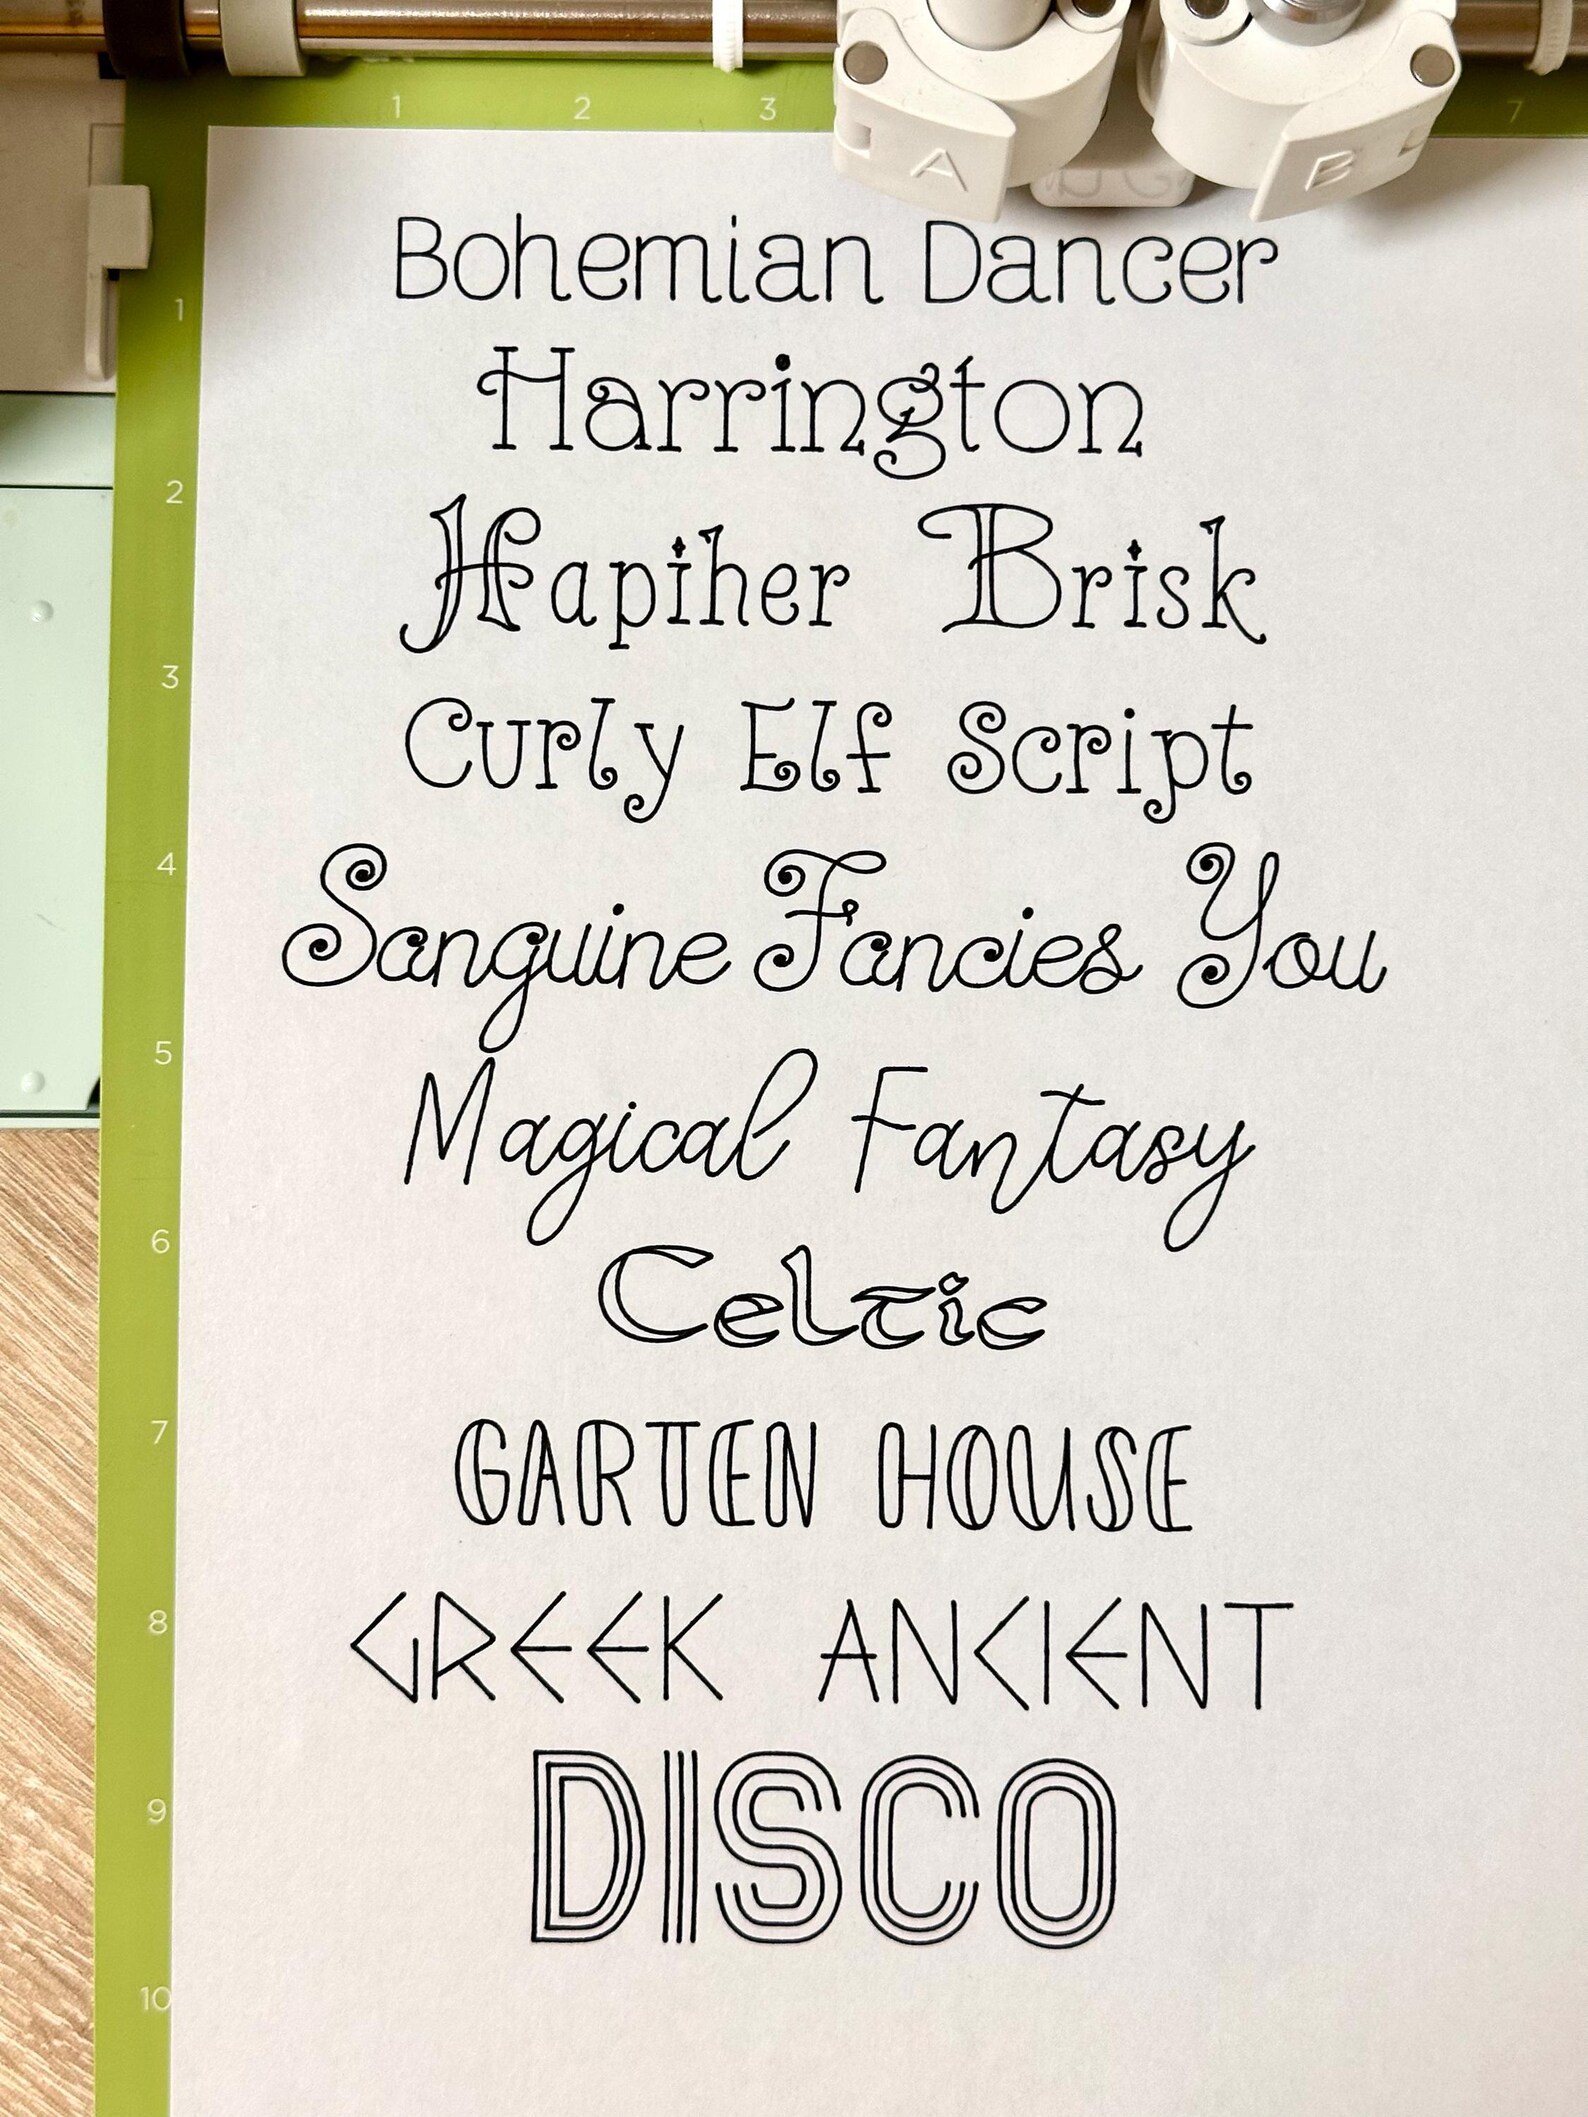 1 2 3 7
A B
Bohemian Dancer
Harrington
Hapiher Brisk
Curly Elf Script
Sanguine Fancies You
Magical Fantasy
Celtic
GARTEN HOUSE
GREEK ANCIENT
DISCO
1
2
3
4
5
6
7
8
9
10